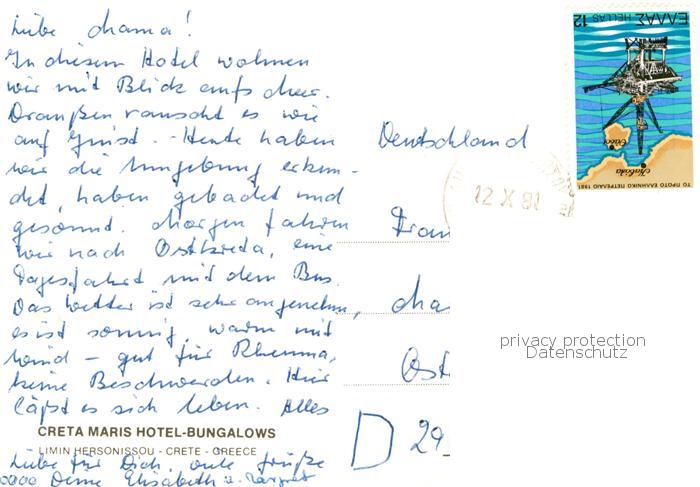 Liebe Mama!
In diesem Hotel wohnen
wir mit Blick aufs Meer.
Draußen rauscht es wie
auf Juist. - Heute haben
wir die Umgebung erkun-
det, haben gebadet und
gesonnt. Morgen fahren
wir nach Ostkreta, eine
Tagesfahrt mit dem Bus.
Das Wetter ist sehr angenehm,
es ist sonnig, warm mit
Wind - gut für Rheuma,
keine Beschwerden. Hier
läßt es sich leben. Alles
CRETA MARIS HOTEL-BUNGALOWS
LIMIN HERSONISSOU - CRETE - GREECE
Liebe für Dich, viele Grüße
Deine Elisabeth u.
Deutschland
Frau
Ost
D 29
12 X 81
ΕΛΛΑΣ HELLAS 12
ΤΟ ΠΡΩΤΟ ΕΛΛΗΝΙΚΟ ΠΕΤΡΕΛΑΙΟ 1981
privacy protection
Datenschutz